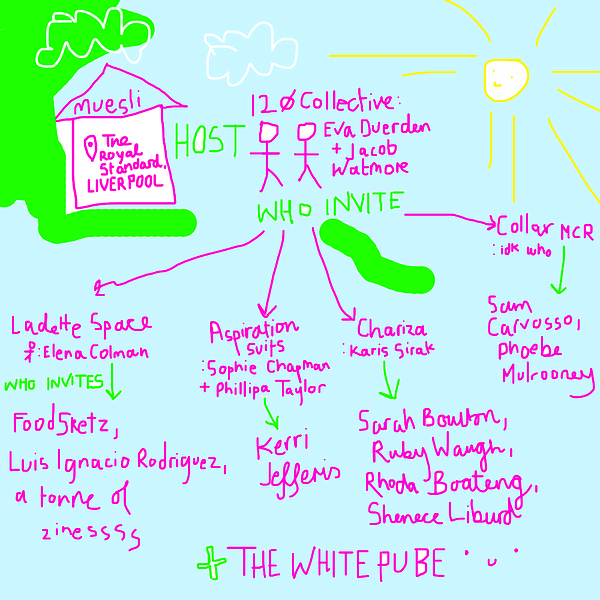 muesli
The
Royal
Standard,
LIVERPOOL
HOST
120 Collective:
Eva Duerden
+ Jacob
Watmore
WHO INVITE
Collar MCR
: idk who
Sam
Carvosso,
Phoebe
Mulrooney
Ladette Space
: Elena Colman
WHO INVITES
FoodSketz,
Luis Ignacio Rodriguez,
a tonne of
zinessss
Aspiration
Suits
: Sophie Chapman
+ Phillipa Taylor
Kerri
Jefferis
Chariza
: Karis Sirak
Sarah Boulton,
Ruby Waugh,
Rhoda Boateng,
Shenece Liburd
+ THE WHITE PUBE